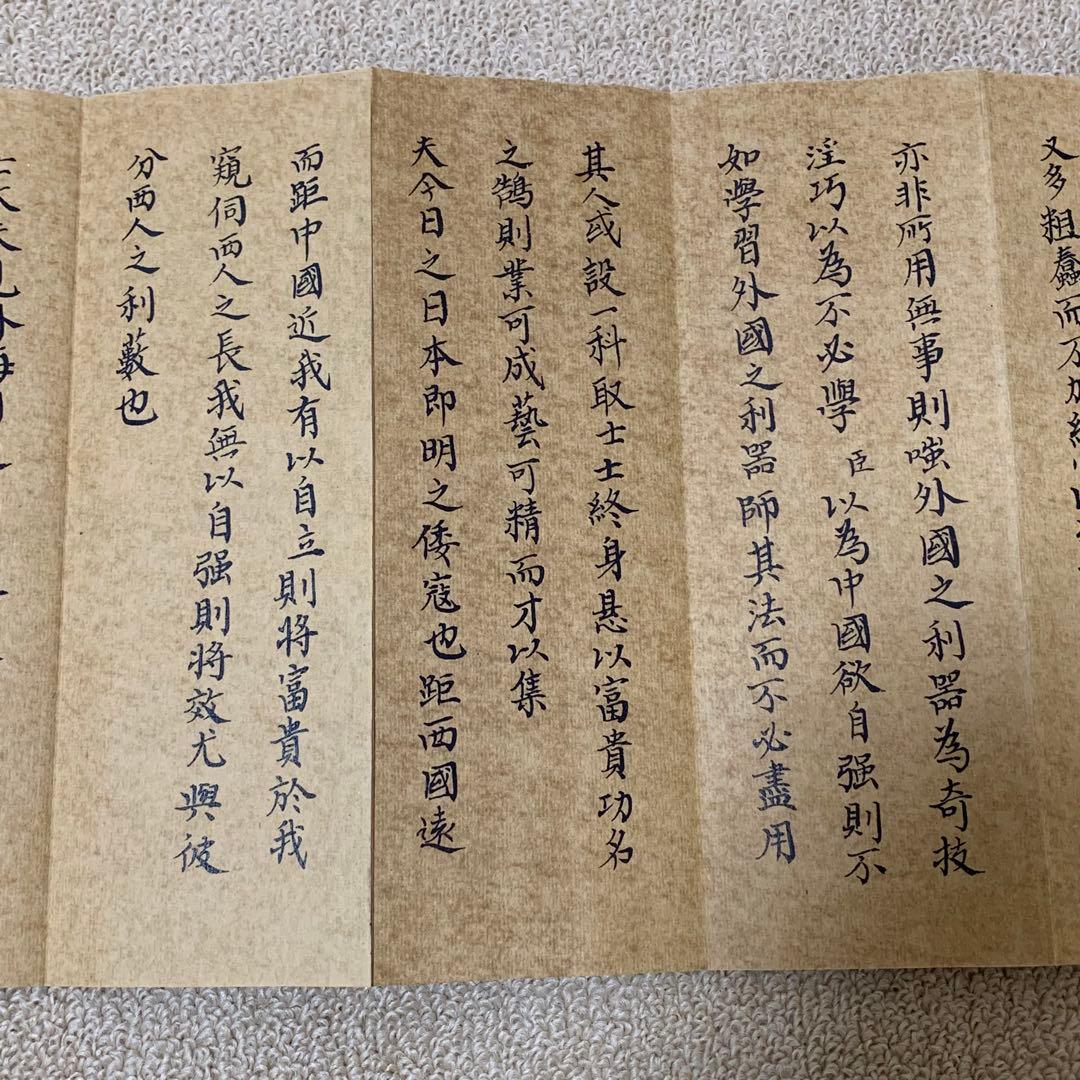 又多粗蠢而不加
亦非所用無事則嗤外國之利器為奇技
淫巧以為不必學 臣 以為中國欲自强則不
如學習外國之利器師其法而不必盡用
其人或設一科取士士終身悬以富貴功名
之鵠則業可成藝可精而才以集
夫今日之日本即明之倭寇也距西國遠
而距中國近我有以自立則將富貴於我
窺伺西人之長我無以自强則將效尤與彼
分西人之利藪也